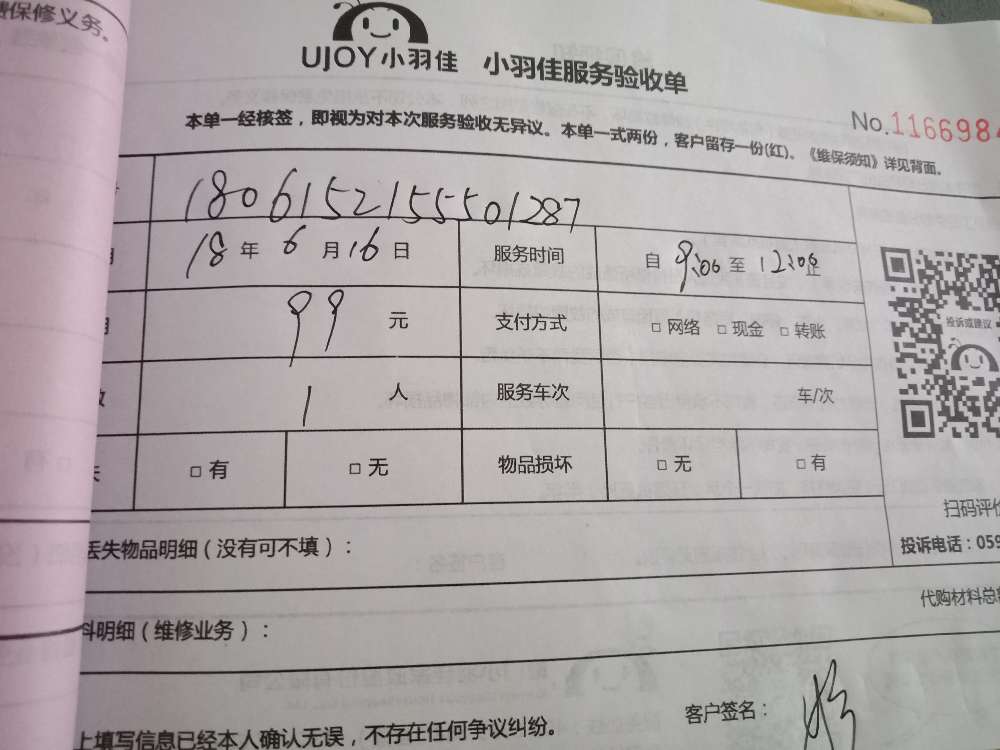 费保修义务。
UJOY小羽佳 小羽佳服务验收单
No.116698
本单一经核签，即视为对本次服务验收无异议。本单一式两份，客户留存一份(红)。《维保须知》详见背面。
180615215501287
18 年 6 月 16 日 服务时间 自 9:00 至 12:00 止
99 元 支付方式 □ 网络 □ 现金 □ 转账
投诉或建议
1 人 服务车次 车/次
□ 有 □ 无 物品损坏 □ 无 □ 有
扫码评价
丢失物品明细（没有可不填）：
投诉电话：059
代购材料总
料明细（维修业务）：
客户签名：
上填写信息已经本人确认无误，不存在任何争议纠纷。